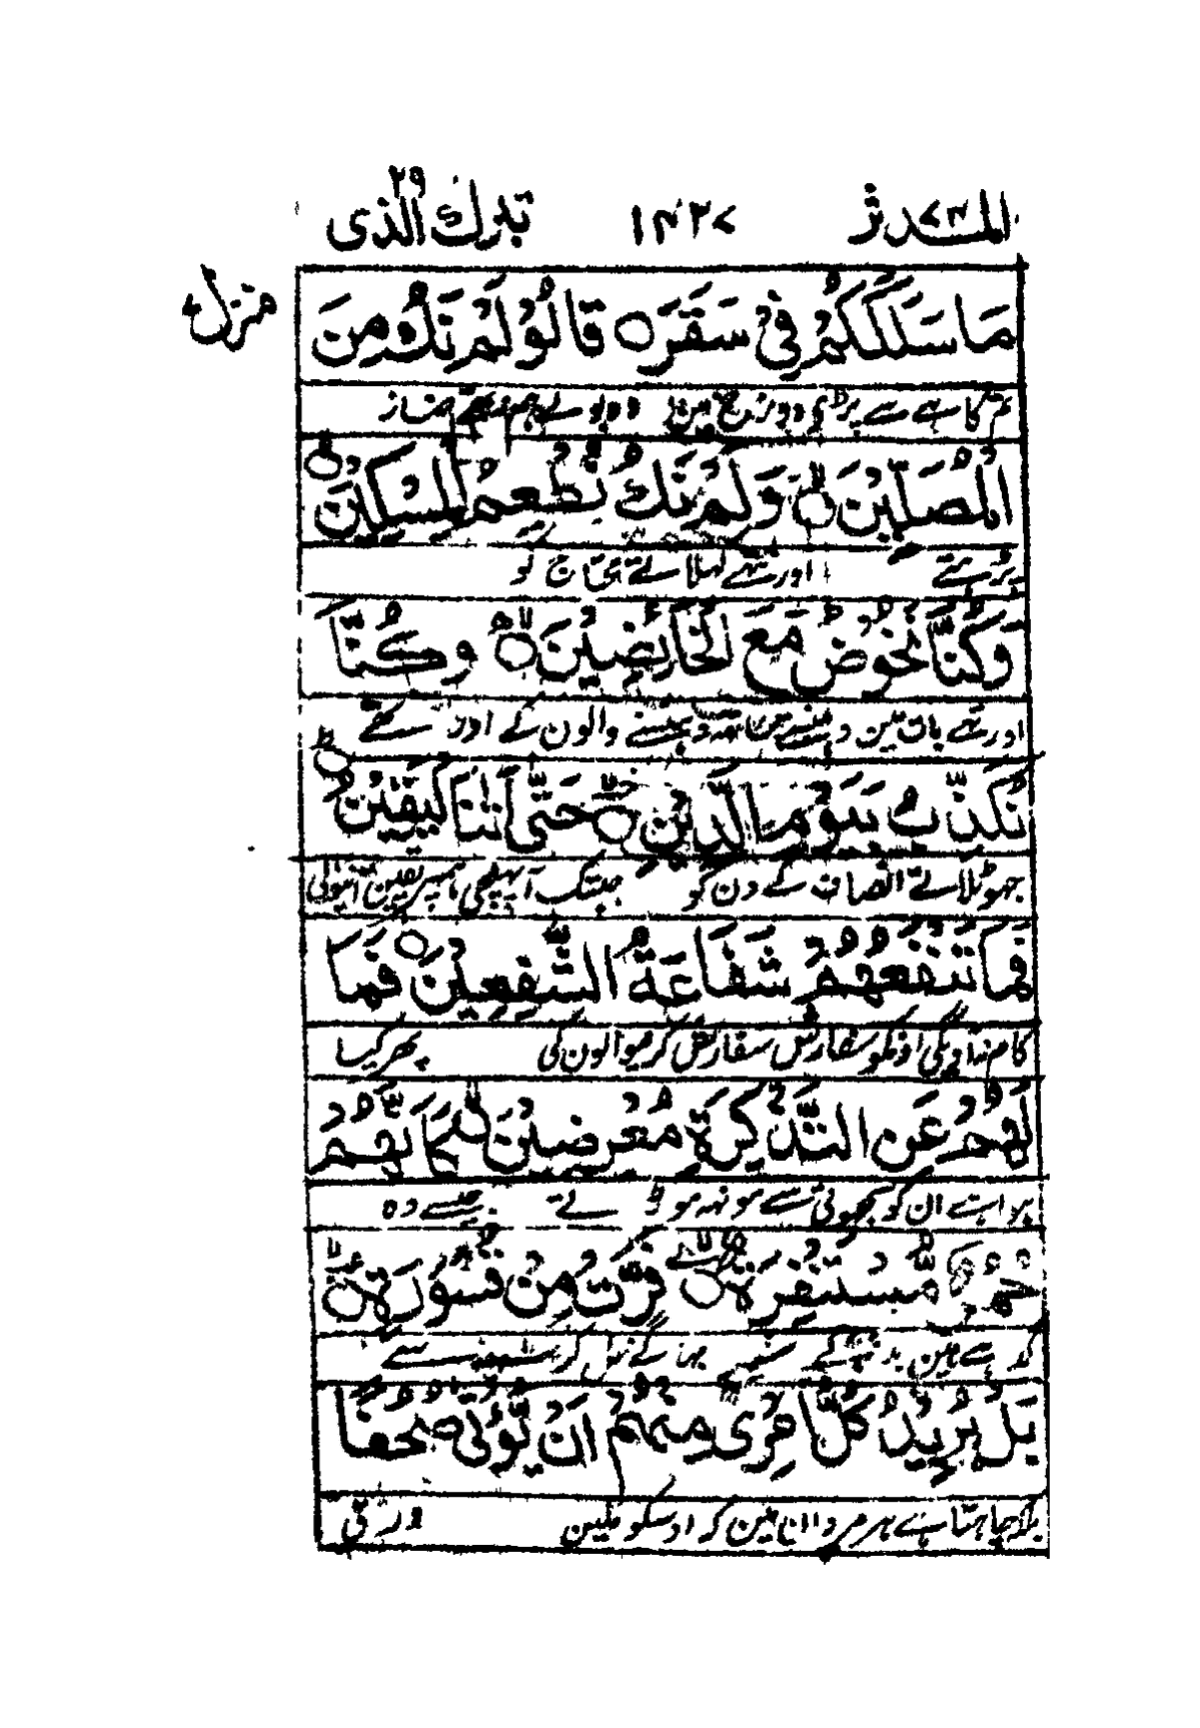 المدثر ٧٤ ١٤٢٧ تبرك الذی ٢٩
منزل ٧
مَا سَلَكَكُمْ فِیْ سَقَرَ ○ قَالُوْا لَمْ نَكُ مِنَ
تم کاہے سے پڑے دوزخ مین وہ بولے ہم نتھے نماز
الْمُصَلِّیْنَ ○ وَلَمْ نَكُ نُطْعِمُ الْمِسْكِیْنَ ○
پڑہتے اور نتھے کہلاتے محتاج کو
وَكُنَّا نَخُوْضُ مَعَ الْخَآئِضِیْنَ ○ وَكُنَّا
اور تھے بات مین دہنستے ساتھ دہسنے والون کے اور تھے
نُكَذِّبُ بِیَوْمِ الدِّیْنِ ○ حَتّٰۤی اَتٰنَا الْیَقِیْنُ ○
جہوٹلاتے انصاف کے دن کو جبتک آ پہنچی ہمپر یقین
فَمَا تَنْفَعُهُمْ شَفَاعَةُ الشّٰفِعِیْنَ ○ فَمَا
کام نہ آویگی اونکو سفارش سفارش کرنیوالون کی پھر کیا
لَهُمْ عَنِ التَّذْكِرَةِ مُعْرِضِیْنَ ○ كَاَنَّهُمْ
ہوا ہے ان کو سے مونہہ موڑتے جیسے وہ
حُمُرٌ مُّسْتَنْفِرَةٌ ○ فَرَّتْ مِنْ قَسْوَرَةٍ ○
ہین بھاگے سے
بَلْ یُرِیْدُ كُلُّ امْرِئٍ مِّنْهُمْ اَنْ یُّؤْتٰی صُحُفًا
بلکہ چاہتا ہے ہر مرد ان مین کہ اوسکو ملین ورق